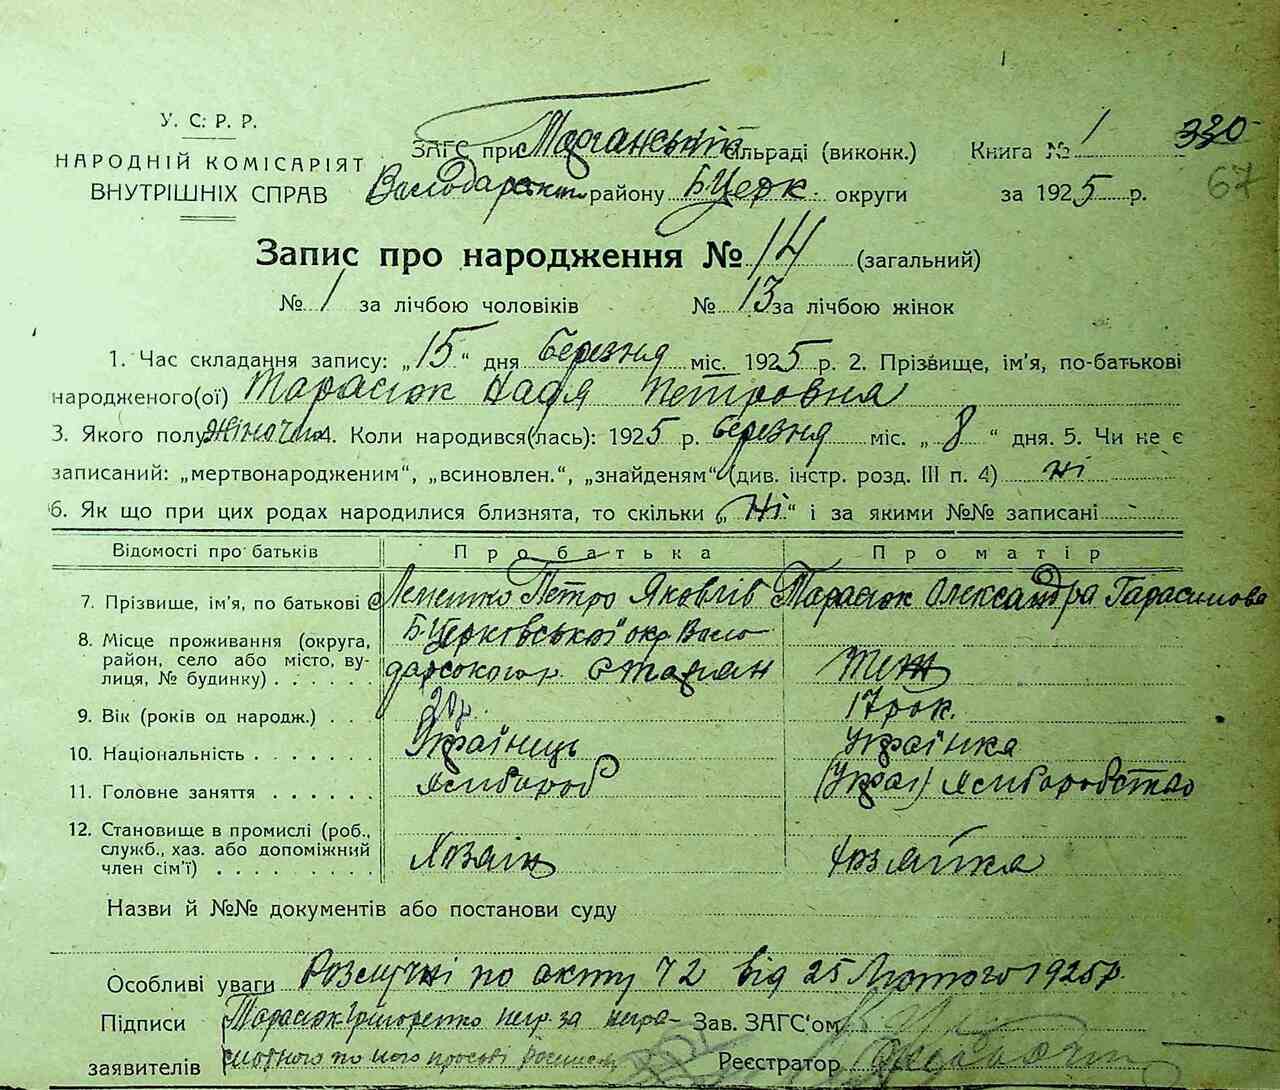 У. С. Р. Р.
НАРОДНІЙ КОМІСАРІЯТ
ВНУТРІШНІХ СПРАВ
ЗАГС при Тарганській сільраді (виконк.) Книга № 1 330
району Б Церк. округи за 1925 р. 67
Запис про народження № 14 (загальний)
№ 1 за лічбою чоловіків № 13 за лічбою жінок
1. Час складання запису: „15“ дня березня міс. 1925 р. 2. Прізвище, ім'я, по-батькові
народженого(ої) Тарасюк Надя Петровна
3. Якого полу жіночого 4. Коли народився(лась): 1925 р. березня міс. „8“ дня. 5. Чи не є
записаний: „мертвонародженим“, „всиновлен.“, „знайденям“ (див. інстр. розд. III п. 4) ні
6. Як що при цих родах народилися близнята, то скільки „Ні“ і за якими №№ записані
Відомості про батьків Про батька Про матір
7. Прізвище, ім'я, по батькові Петро Яковлів Тарасюк Олександра Гарасимова
8. Місце проживання (округа, Б Церковської окр Воло
район, село або місто, ву-
лиця, № будинку) теж
9. Вік (років од народж.) 20 р. 17 рок.
10. Національність Українець Українка
11. Головне заняття
12. Становище в промислі (роб.,
служб., хаз. або допоміжний
член сім'ї) Хозаїн хозяйка
Назви й №№ документів або постанови суду
Особливі уваги по акту 72 від 25 Лютого 1925 р.
Підписи Тарасюк за негра- Зав. ЗАГС'ом
заявителів по його Реєстратор